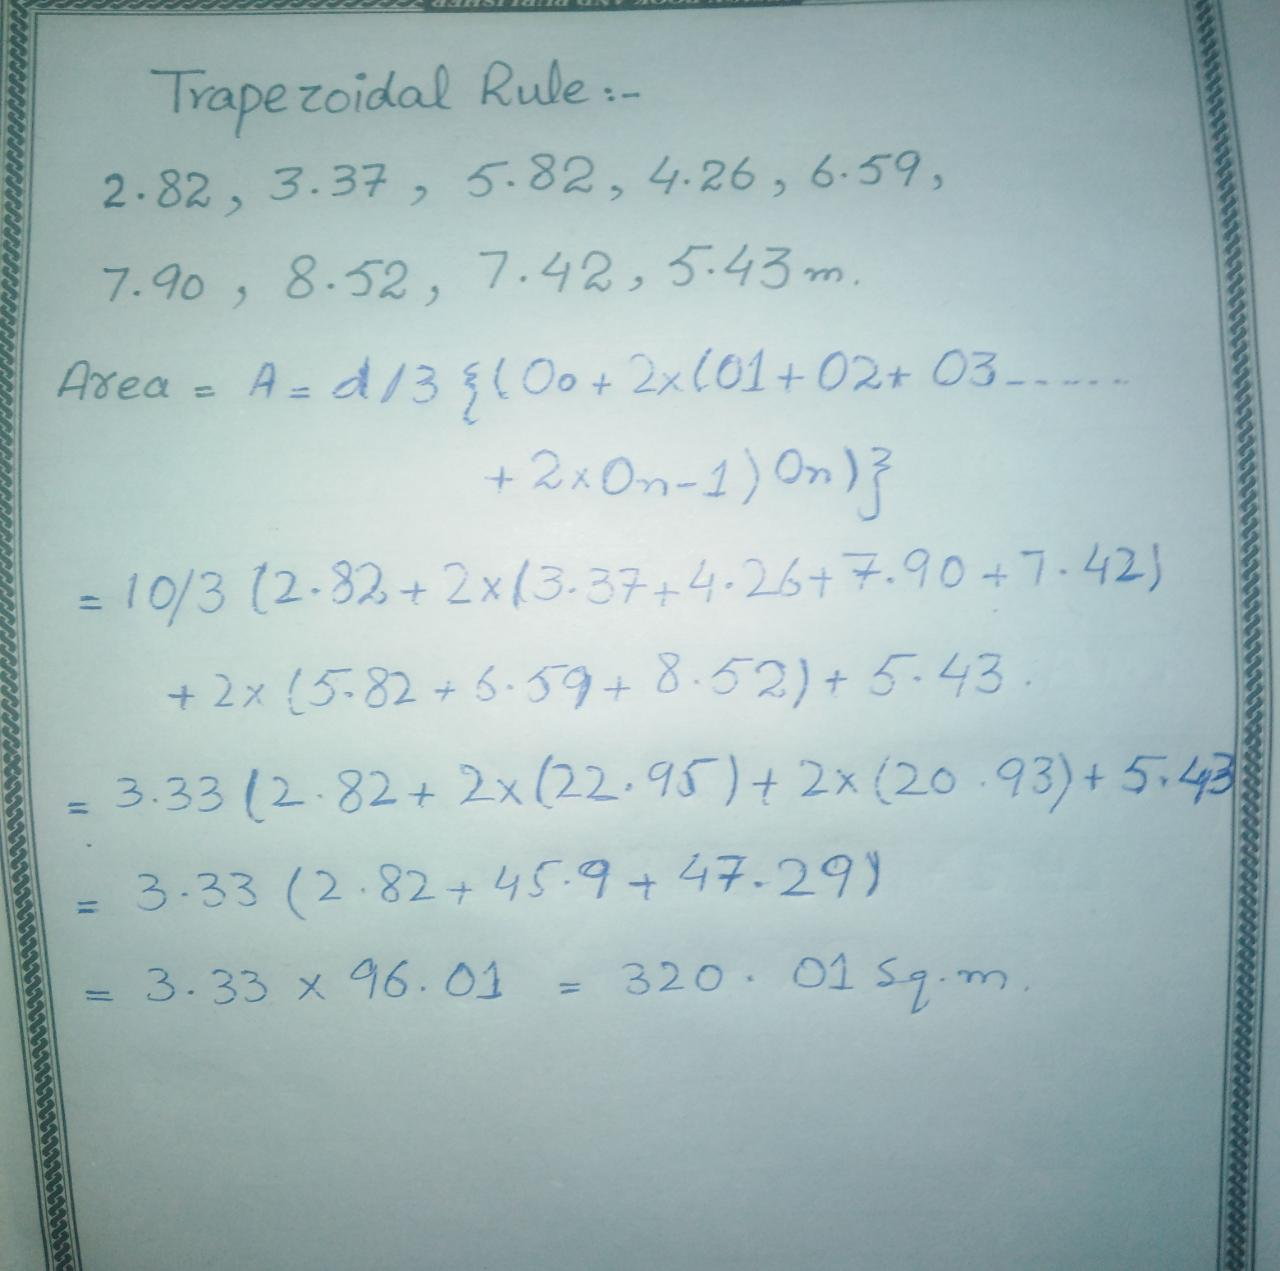 Trapezoidal Rule :-
2.82, 3.37, 5.82, 4.26, 6.59,
7.90, 8.52, 7.42, 5.43 m.
Area = A = d/3 {(O0 + 2x(01 + 02 + 03 ------
+ 2x0n-1) 0n)}
= 10/3 (2.82 + 2x(3.37 + 4.26 + 7.90 + 7.42)
+ 2x (5.82 + 6.59 + 8.52) + 5.43.
= 3.33 (2.82 + 2x(22.95) + 2x (20.93) + 5.43
= 3.33 (2.82 + 45.9 + 47.29)
= 3.33 x 96.01 = 320.01 Sq.m.